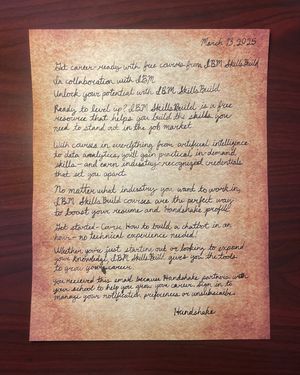 March 13, 2025
Get career-ready with free courses from IBM SkillsBuild
In collaboration with IBM
Unlock your potential with IBM SkillsBuild
Ready to level up? IBM SkillsBuild is a free
resource that helps you build the skills you
need to stand out in the job market.
With courses in everything from artificial intelligence
to data analytics, you'll gain practical, in-demand
skills - and earn industry-recognized credentials
that set you apart.
No matter what industry you want to work in,
IBM SkillsBuild courses are the perfect way
to boost your resume and Handshake profile.
Get started - Learn How to build a chatbot in an
hour - no technical experience needed!
Whether you're just starting out or looking to expand
your knowledge, IBM SkillsBuild gives you the tools
to grow your career.
You received this email because Handshake partners with
your school to help you grow your career. Sign in to
manage your notification preferences or unsubscribe.
Handshake